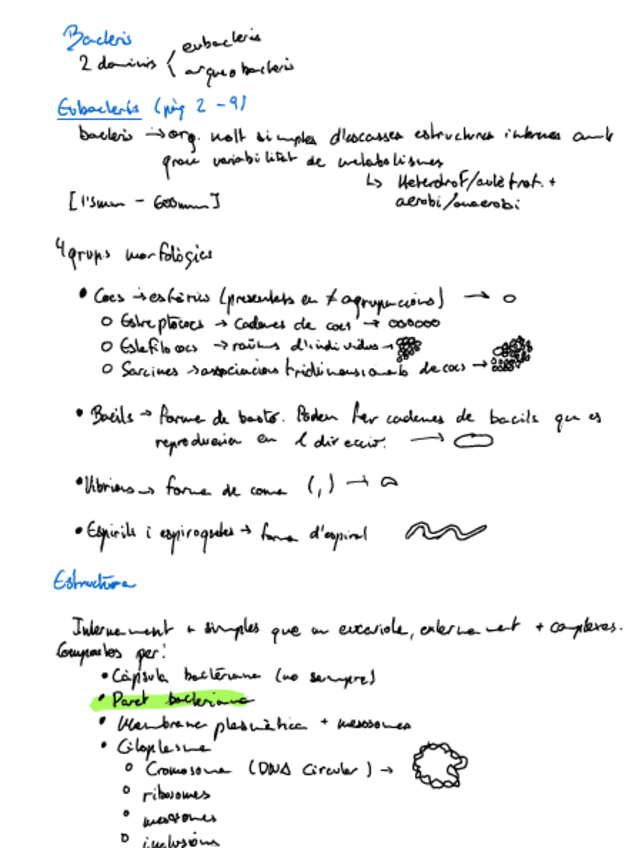 Bacteris
2 dominis
eubacteris
arqueobacteris
Eubacteris (pàg 2 - 9)
bacteris → org. molt simples d'escasses estructures internes amb
gran variabilitat de metabolismes
↳ Heteròtrof/autòtrof. +
aerobi/anaerobi
[1'5mm - 600mm]
4 grups morfològics
• Cocs → esfèrics (presentats en ≠ agrupacions) →
○ Estreptococs → Cadenes de cocs →
○ Estafilococs → raïms d'individus →
○ Sarcines → associacions tridimensionals de cocs →
• Bacils → Forma de bastó. Poden fer cadenes de bacils que es
reprodueixin en 1 direcció. →
• Vibrions → forma de coma (,) →
• Espirils i espiroquetes → forma d'espiral
Estructura
Internament + simples que un eucariota, externament + complexes.
Compostes per:
• Càpsula bacteriana (no sempre)
• Paret bacteriana
• Membrana plasmàtica + mesosomes
• Citoplasma
○ Cromosoma (DNA Circular) →
○ ribosomes
○ mesosomes
○ inclusions